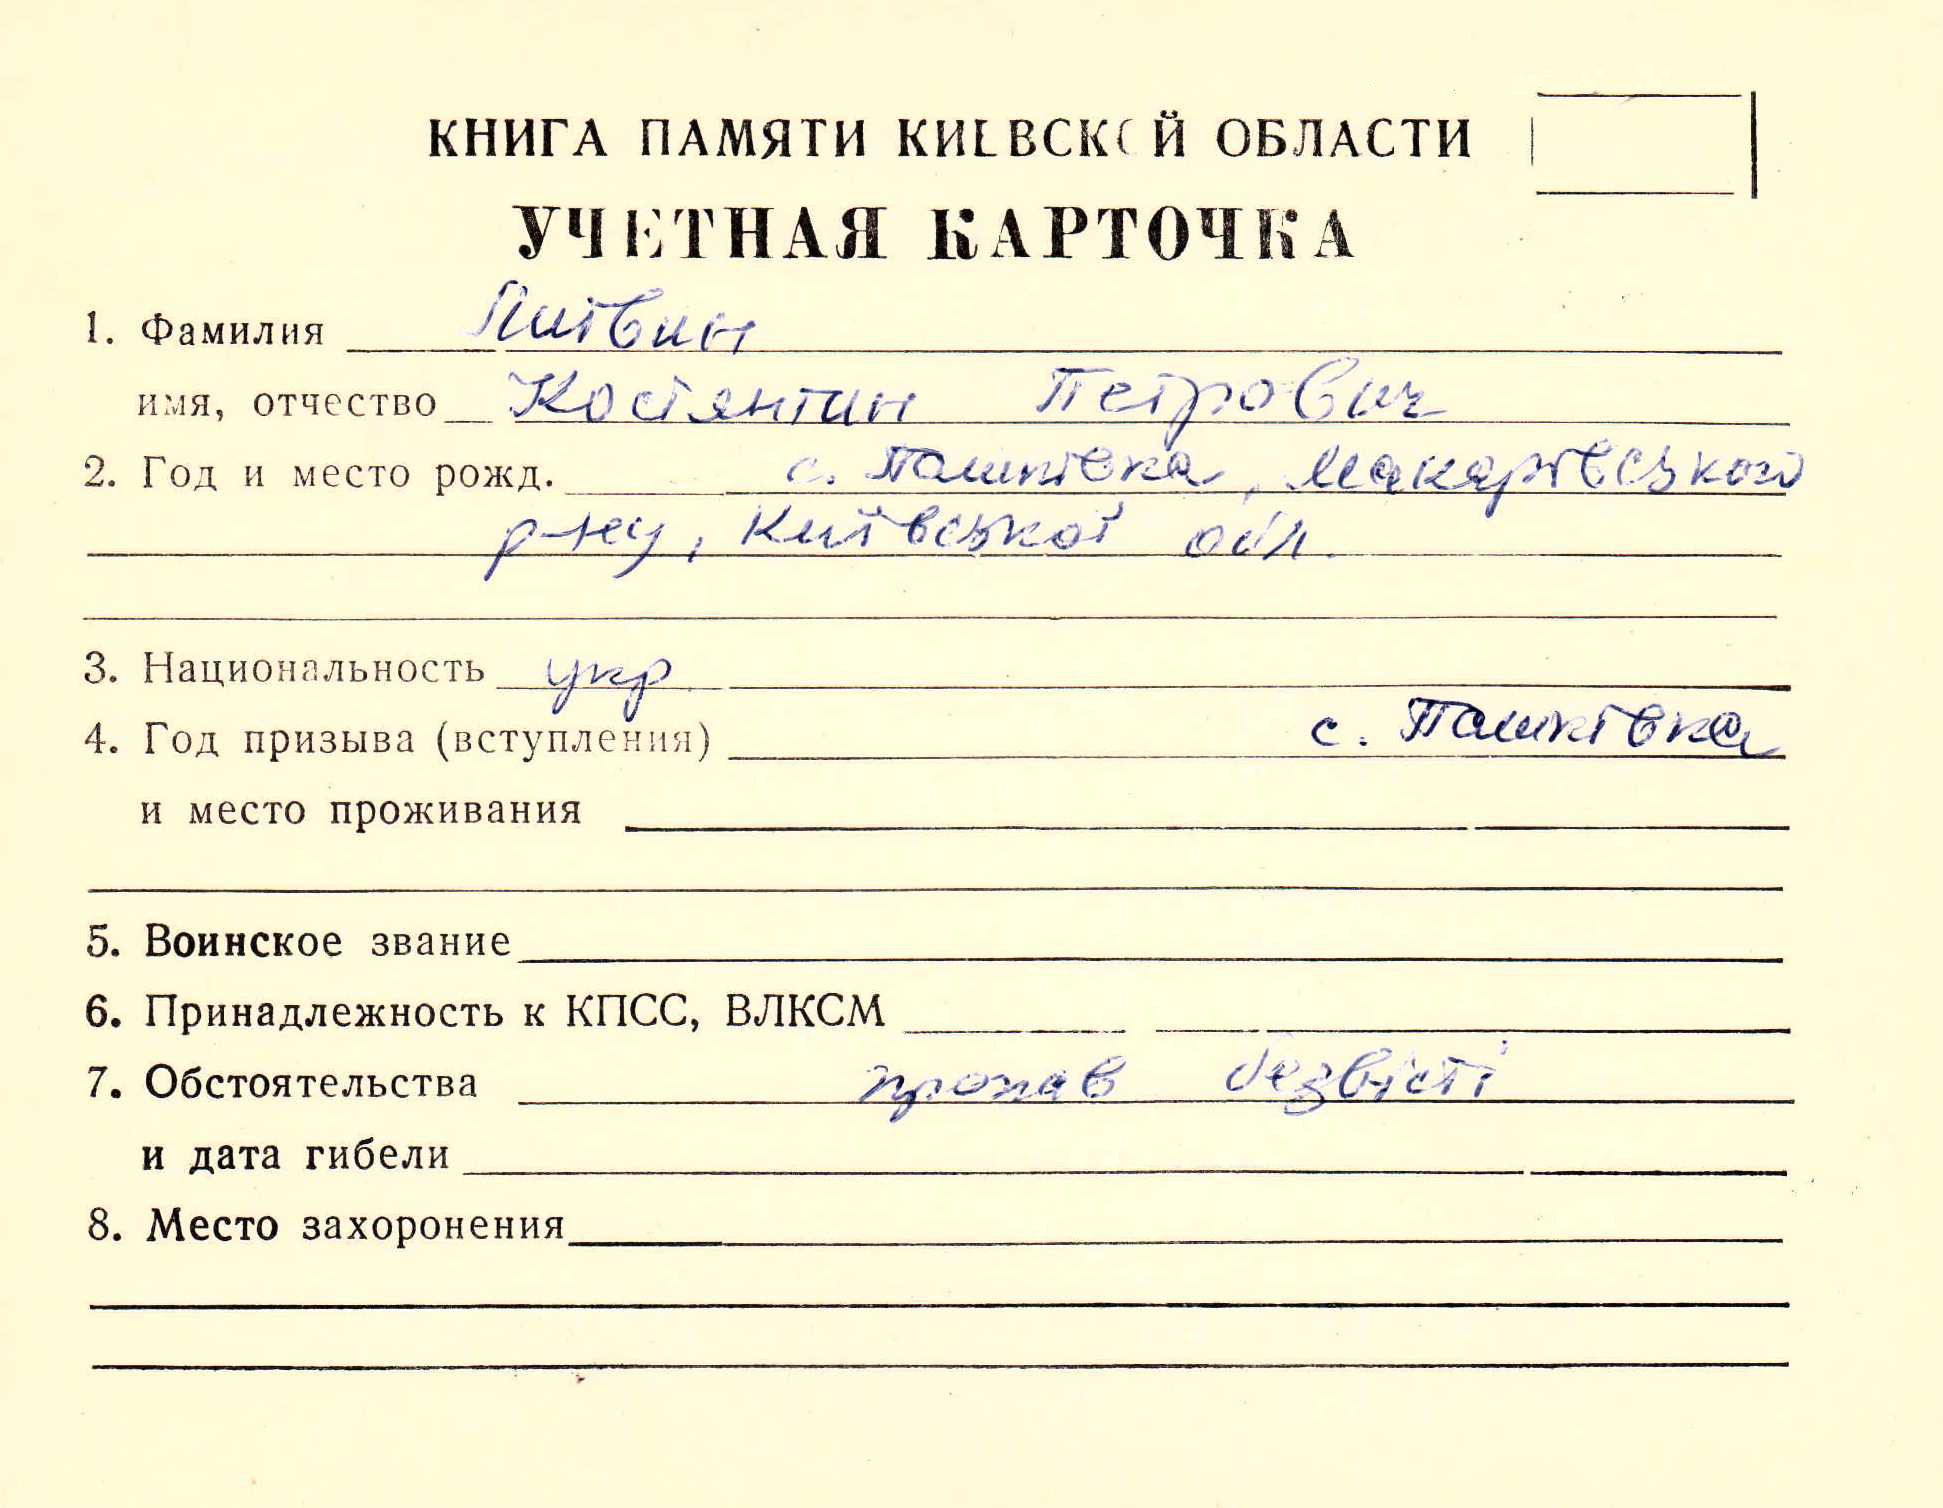 КНИГА ПАМЯТИ КИЕВСКОЙ ОБЛАСТИ
УЧЕТНАЯ КАРТОЧКА
1. Фамилия Литвин
имя, отчество Костянтин Петрович
2. Год и место рожд. с. Пашківка, Макарівського
р-ну, Київської обл.
3. Национальность укр
4. Год призыва (вступления) с. Пашківка
и место проживания
5. Воинское звание
6. Принадлежность к КПСС, ВЛКСМ
7. Обстоятельства пропав безвісті
и дата гибели
8. Место захоронения